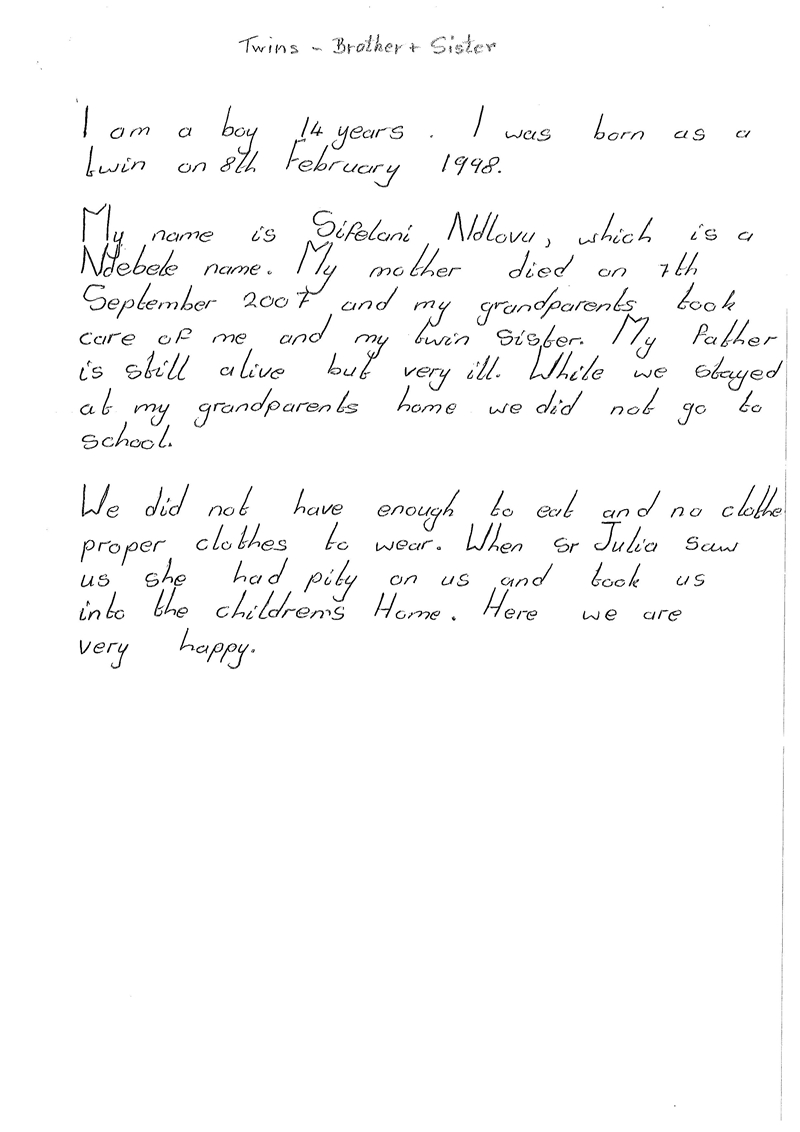 Twins - Brother + Sister
I am a boy 14 years . I was born as a
twin on 8th February 1998.
My name is Sifelani Ndlovu, which is a
Ndebele name. My mother died on 7th
September 2007 and my grandparents took
care of me and my twin sister. My father
is still alive but very ill. While we stayed
at my grandparents home we did not go to
school.
We did not have enough to eat and no clothe
proper clothes to wear. When Sr Julia saw
us she had pity on us and took us
into the children's Home. Here we are
very happy.